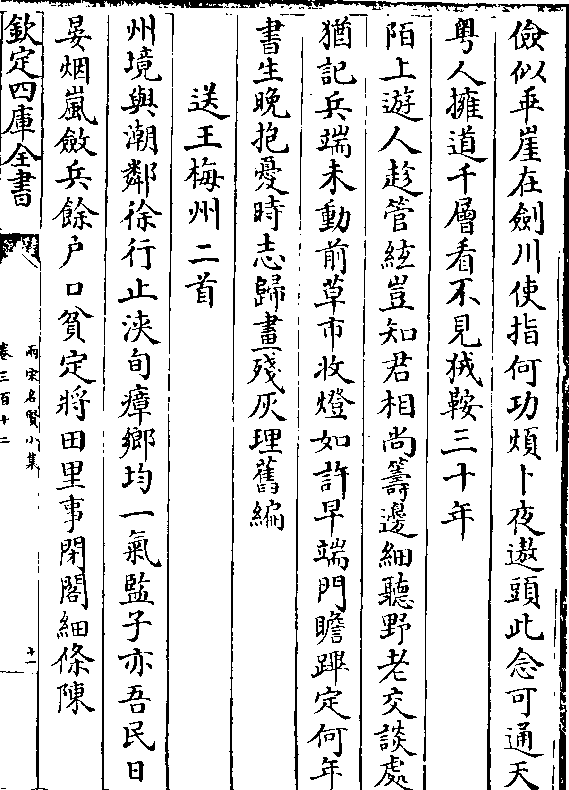 儉似乖崖在劍川使指何功煩卜夜遨頭此念可通天
粤人擁道千層看不見狨鞍三十年
陌上遊人趁管絃豈知君相尚籌邊細聽野老交談處
猶記兵端未動前草市收燈如許早端門瞻蹕定何年
書生晚抱憂時志歸畫殘灰理舊編
送王梅州二首
州境與潮鄰徐行止浹旬瘴鄉均一氣監子亦吾民日
晏烟嵐斂兵餘户口貧定將田里事閉閣細條陳
欽定四庫全書
兩宋名賢小集
卷三百十二
十一